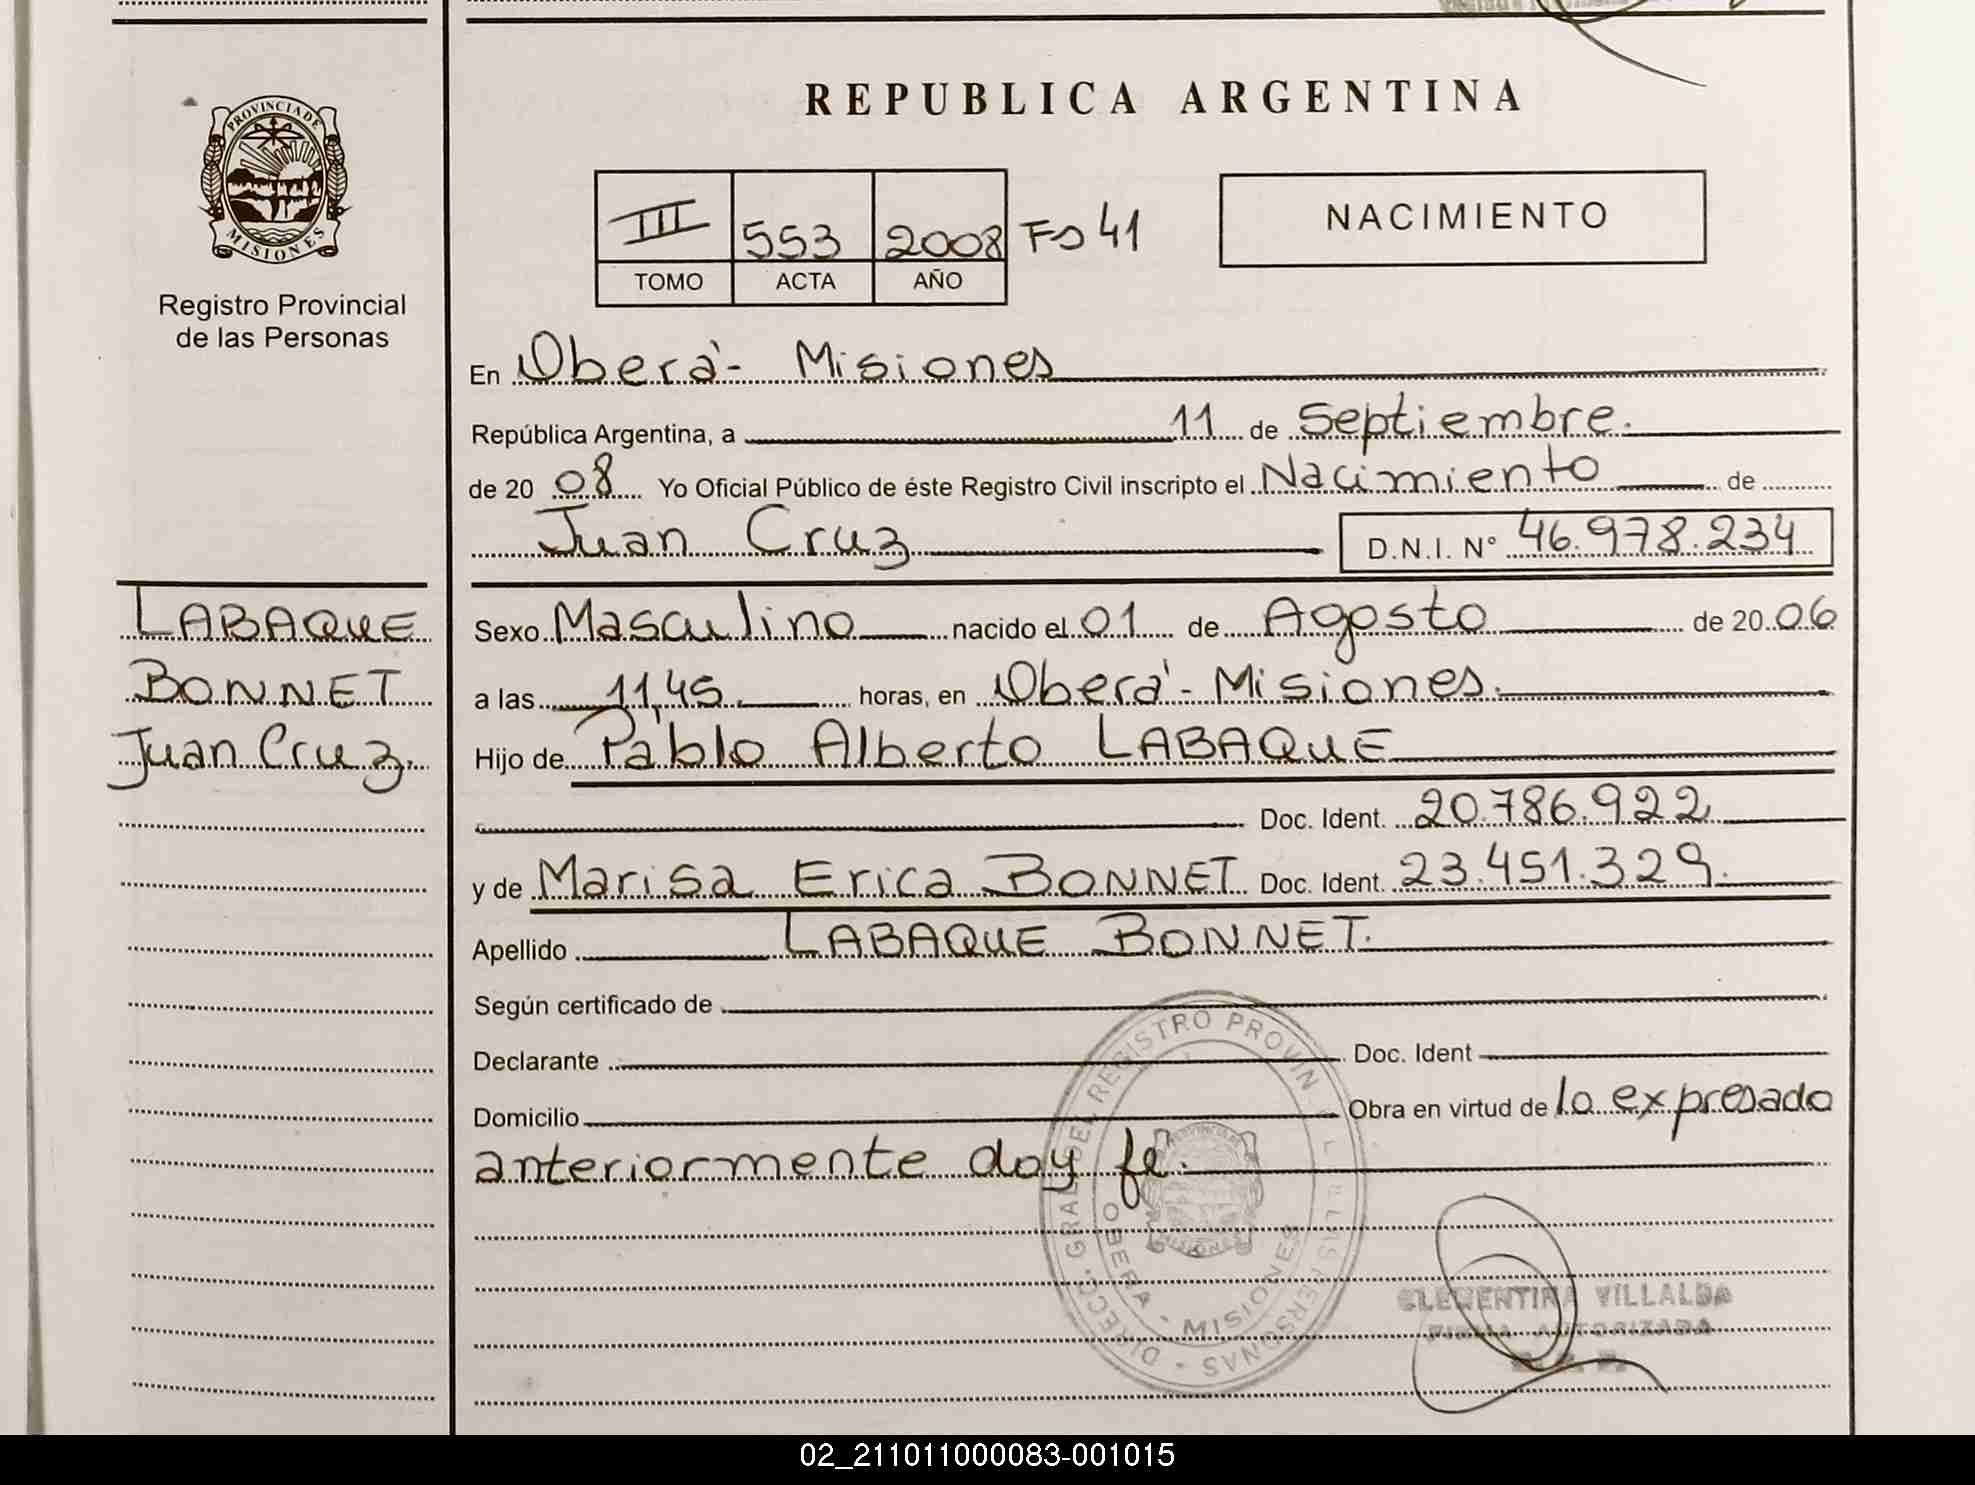 REPUBLICA ARGENTINA
PROVINCIA DE
MISIONES
Registro Provincial
de las Personas
III 553 2008 Fo 41
TOMO ACTA AÑO
NACIMIENTO
En Oberá - Misiones
República Argentina, a 11 de Septiembre.
de 20 08 Yo Oficial Público de éste Registro Civil inscripto el Nacimiento de
Juan Cruz D.N.I. N° 46.978.234
LABAQUE
BONNET
Juan Cruz.
Sexo Masculino nacido el 01 de Agosto de 20 06
a las 11,45 horas, en Oberá - Misiones.
Hijo de Pablo Alberto LABAQUE
Doc. Ident. 20.786.922
y de Marisa Erica BONNET Doc. Ident. 23.451.329.
Apellido LABAQUE BONNET.
Según certificado de
Declarante Doc. Ident
Domicilio Obra en virtud de lo expresado
anteriormente doy fe.
DIRECC. GRAL. DEL REGISTRO PROVIN PERSONAS
OBERA - MISIONES
CLEMENTINA VILLALBA
FIRMA AUTORIZADA
02_211011000083-001015